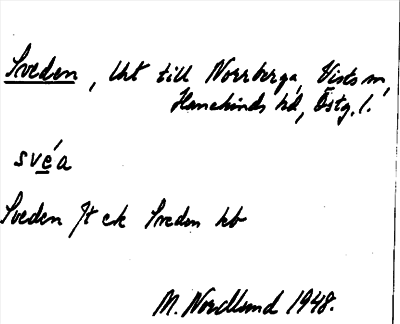 Sveden, lht till Norrberga, Vists sn,
Hanekinds hd, Östg. l.
svéa
Sveden Jt ek Sveden hb
M. Nordlund 1948.